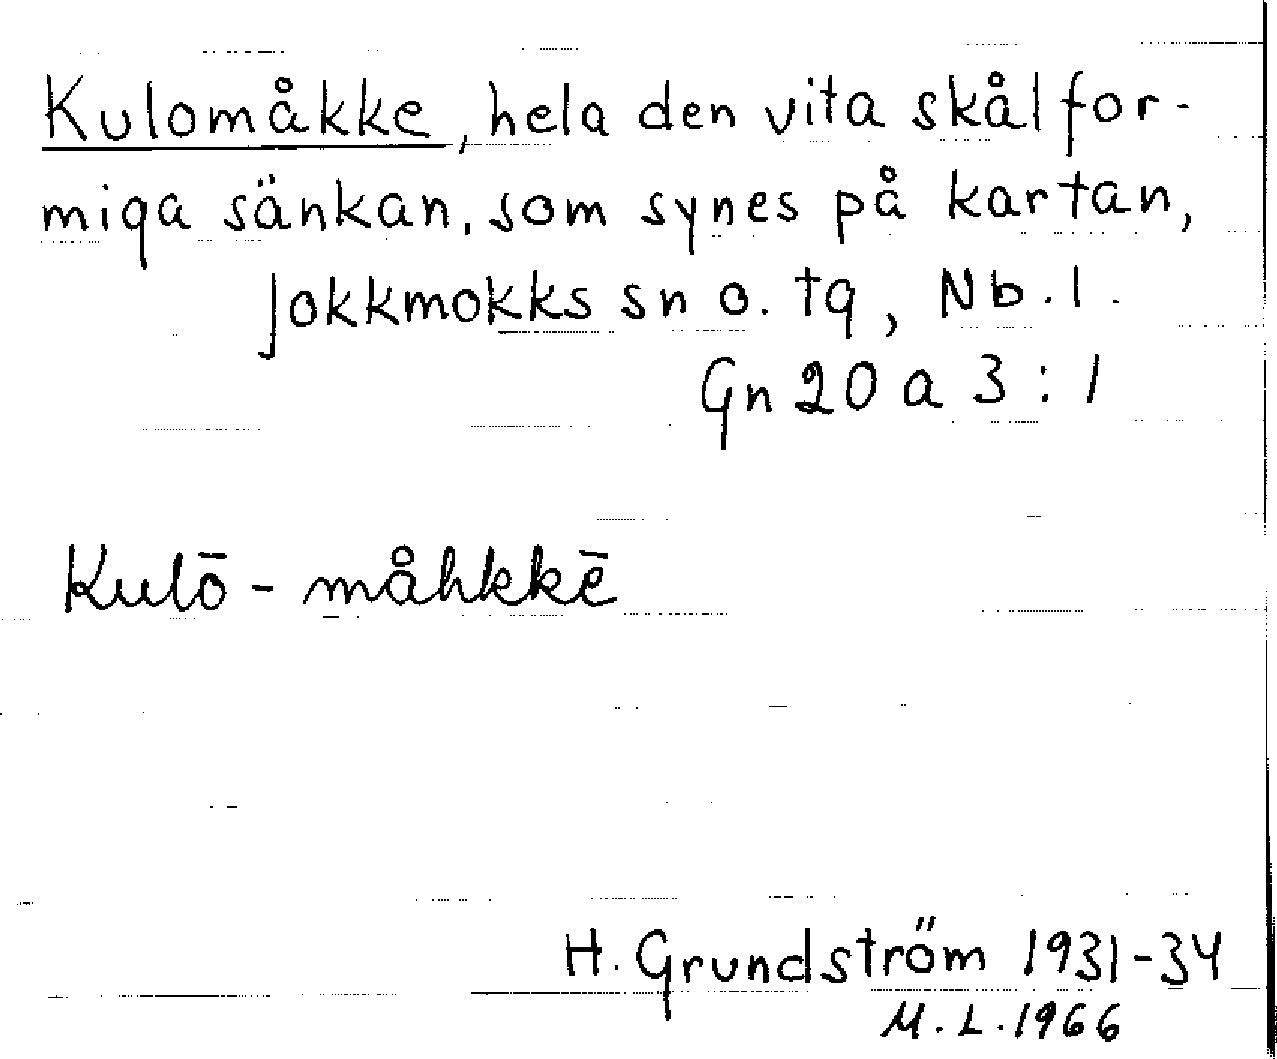 Kulomåkke, hela den vita skålfor-
miga sänkan, som synes på kartan,
Jokkmokks sn o. tg, Nb. l.
Gn 20 a 3 : 1
Kulō - måhkkē
H. Grundström 1931-34
M. L. 1966